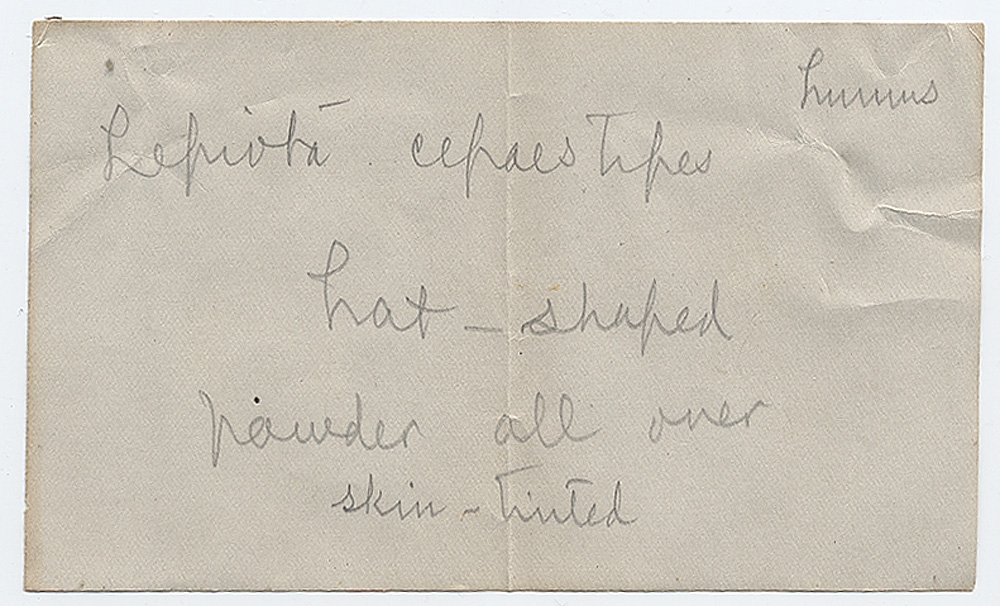 humus
Lepiota cepaestipes
hat - shaped
powder all over
skin - tinted